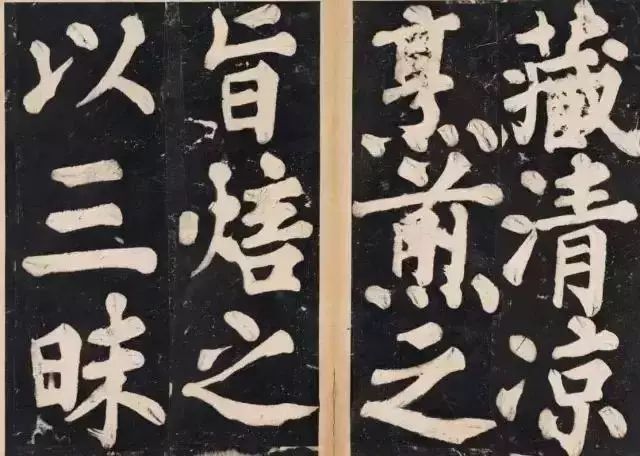 藏清涼
烹煎之
旨焙之
以三昧